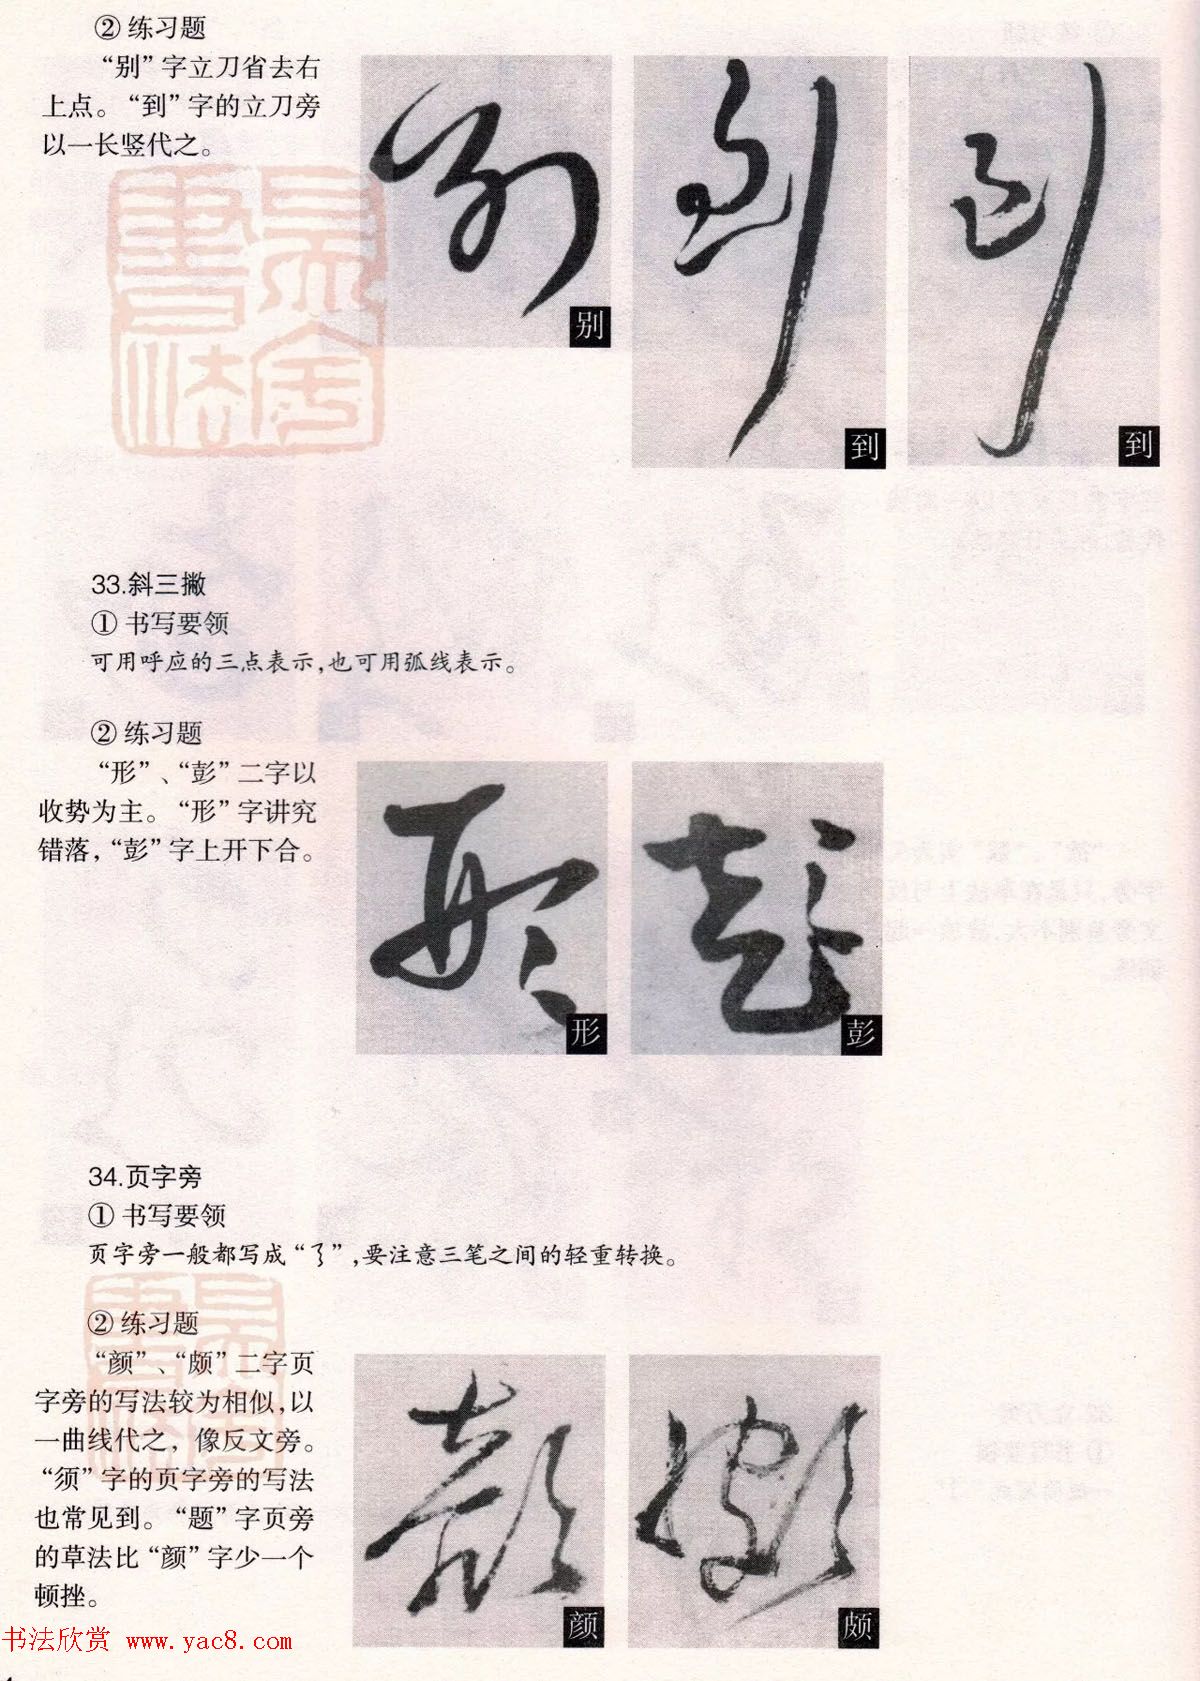 ② 练习题
“别”字立刀省去右
上点。“到”字的立刀旁
以一长竖代之。
别
到
到
33.斜三撇
① 书写要领
可用呼应的三点表示,也可用弧线表示。
② 练习题
“形”、“彭”二字以
收势为主。“形”字讲究
错落,“彭”字上开下合。
形
彭
34.页字旁
① 书写要领
页字旁一般都写成“　”,要注意三笔之间的轻重转换。
② 练习题
“颜”、“颇”二字页
字旁的写法较为相似,以
一曲线代之,像反文旁。
“须”字的页字旁的写法
也常见到。“题”字页旁
的草法比“颜”字少一个
顿挫。
颜
颇
书法欣赏 www.yac8.com